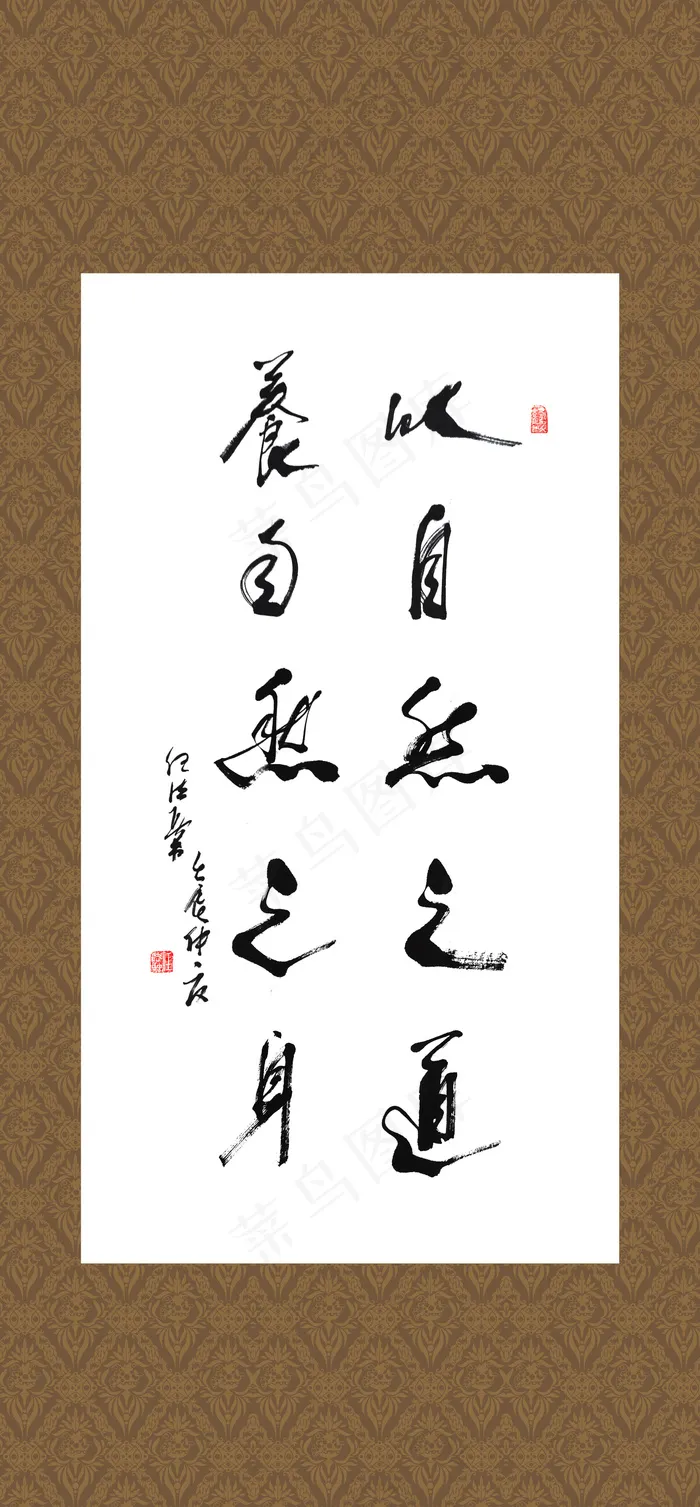 以自然之道
養自然之身
壬辰仲夏
任法融
菜鸟图库
菜鸟图库
菜鸟图库